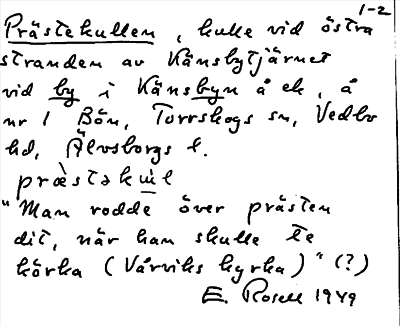 1-2
Prästekullen, kulle vid östra
stranden av Känsbytjärnet
vid by i Känsbyn å ek, å
nr 1 Bön, Torrskogs sn, Vedbo
hd, Älvsborgs l.
præ̀stəku̇l
"Man rodde över prästen
dit, när han skulle te
körka (Vårviks kyrka)" (?)
E. Rosell 1949